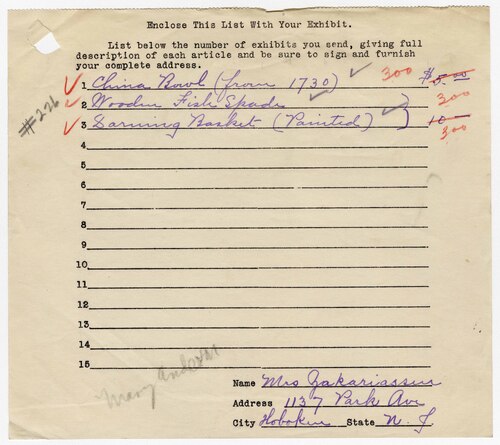 Enclose This List With Your Exhibit.
List below the number of exhibits you send, giving full
description of each article and be sure to sign and furnish
your complete address.
1 China Bowl (from 1730) 300 $5.00
2 Wooden Fish Spade 300
3 Darning Basket (Painted) 10 300
#226
4
5
6
7
8
9
10
11
12
13
14
15
Mary
Name Mrs Zakariassen
Address 1137 Park Ave
City Hoboken State N. J.